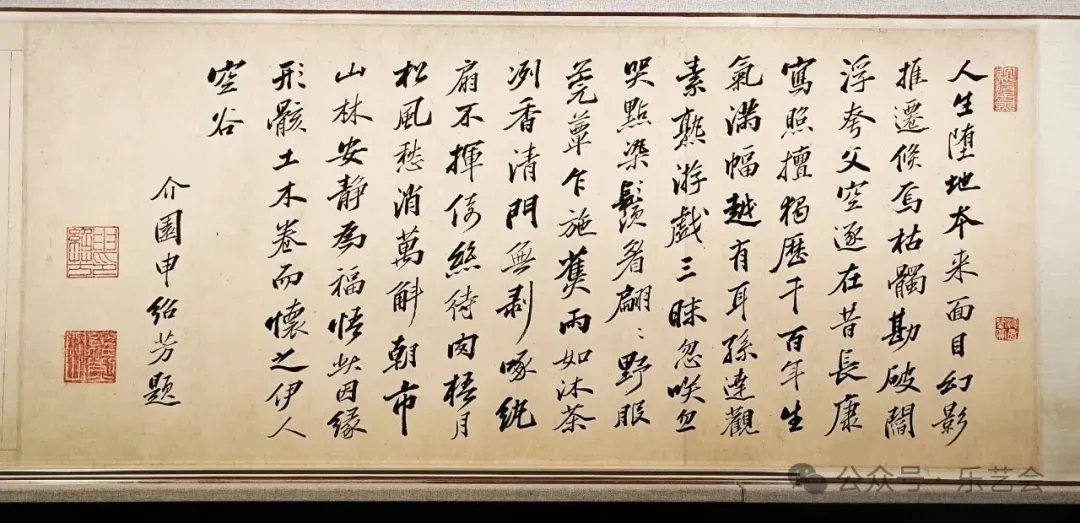 人生堕地本来面目幻影
推遷倏焉枯髑勘破闊
浮夸父空逐在昔長康
寫照擅獨歷千百年生
氣滿幅越有耳孫達觀
素熟游戲三昧忽咲忽
哭點染鬚眉翩：野服
莞蕈乍施蕉雨如沐茶
冽香清門無剥啄紈
扇不揮倚絲待肉梧月
松風愁消萬斛朝市
山林安静為福悟茲因緣
形骸土木卷而懷之伊人
空谷
介園申紹芳題
公众号·乐艺会